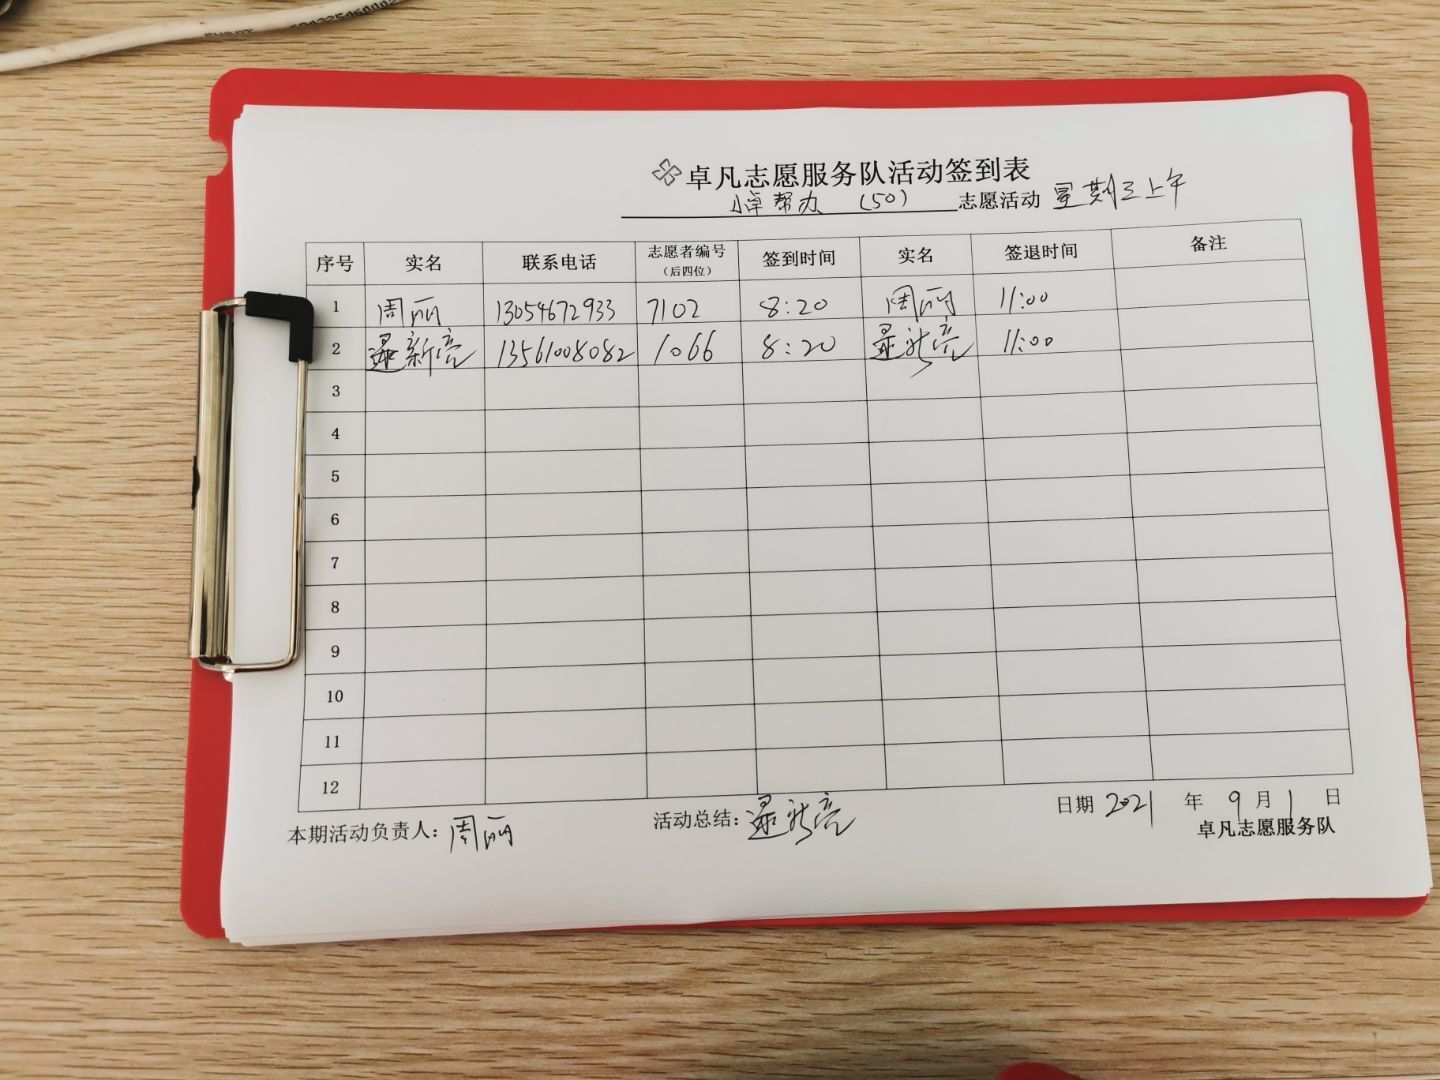 卓凡志愿服务队活动签到表
小卓帮办 (50) 志愿活动 星期三上午
序号 实名 联系电话 志愿者编号 (后四位) 签到时间 实名 签退时间 备注
1 周丽 13054672933 7102 8:20 周丽 11:00
2 新亮 13561008082 1066 8:20 新亮 11:00
3
4
5
6
7
8
9
10
11
12
本期活动负责人: 周丽 活动总结: 新亮 日期 2021 年 9 月 1 日
卓凡志愿服务队